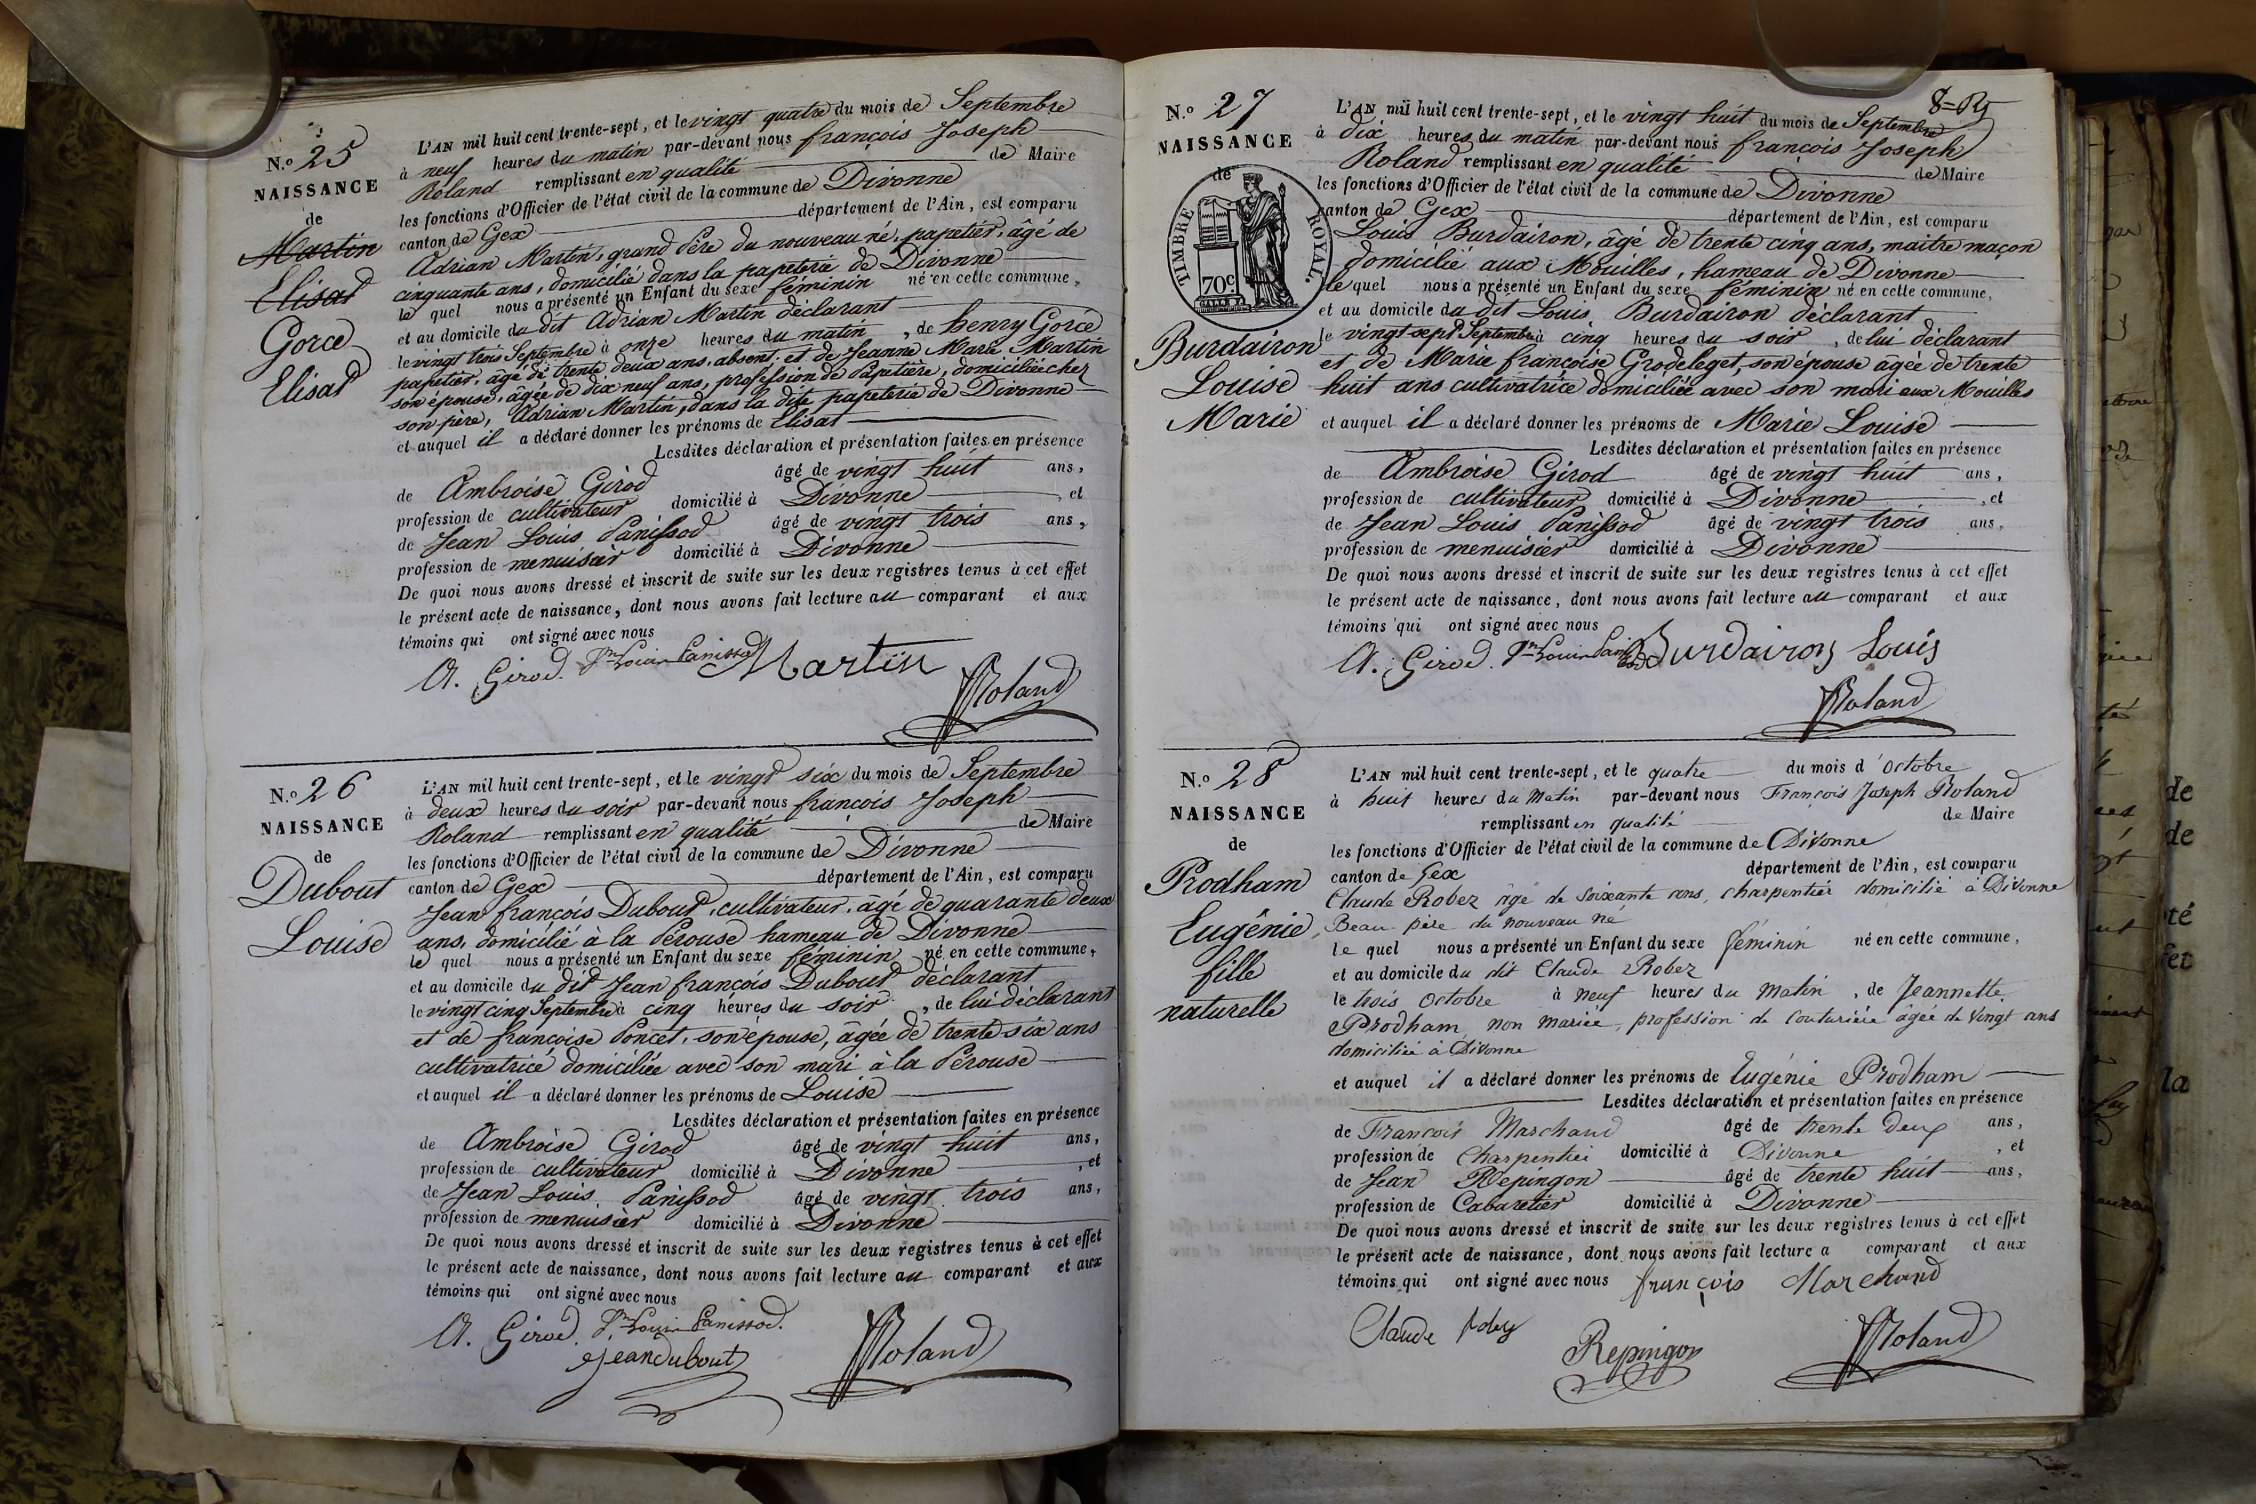 N.o 25
NAISSANCE
de
Martin
Elisat
Gorce
Elisat
L'AN mil huit cent trente-sept, et le vingt quatre du mois de Septembre
à neuf heures du matin par-devant nous françois Joseph
Roland remplissant en qualité de Maire
les fonctions d'Officier de l'état civil de la commune de Divonne
canton de Gex département de l'Ain, est comparu
Adrian Martin, grand Père du nouveau né, papetier, âgé de
cinquante ans, domicilié dans la papeterie de Divonne
le quel nous a présenté un Enfant du sexe féminin né en cette commune,
et au domicile du dit Adrian Martin déclarant
le vingt trois Septembre à onze heures du matin, de henry Gorce
papetier, âgé de trente deux ans, absent, et de Jeanne Marie Martin
son épouse, âgée de dix neuf ans, profession de Papetière, domiciliée chez
son père, Adrian Martin, dans la dite papeterie de Divonne
et auquel il a déclaré donner les prénoms de Elisat
Lesdites déclaration et présentation faites en présence
de Ambroise Girod âgé de vingt huit ans,
profession de cultivateur domicilié à Divonne, et
de Jean Louis Panissod âgé de vingt trois ans,
profession de menuisier domicilié à Divonne
De quoi nous avons dressé et inscrit de suite sur les deux registres tenus à cet effet
le présent acte de naissance, dont nous avons fait lecture au comparant et aux
témoins qui ont signé avec nous
A. Girod. Jn Louis Panissod Martin
Roland
N.o 26
NAISSANCE
de
Dubout
Louise
L'AN mil huit cent trente-sept, et le vingt six du mois de Septembre
à deux heures du soir par-devant nous françois Joseph
Roland remplissant en qualité de Maire
les fonctions d'Officier de l'état civil de la commune de Divonne
canton de Gex département de l'Ain, est comparu
Jean françois Dubout, cultivateur, âgé de quarante deux
ans, domicilié à la Pérouse hameau de Divonne
le quel nous a présenté un Enfant du sexe féminin né en cette commune,
et au domicile du dit Jean françois Dubout déclarant
le vingt cinq Septembre à cinq heures du soir, de lui déclarant
et de françoise Poncet, son épouse, âgée de trente six ans
cultivatrice domiciliée avec son mari à la Pérouse
et auquel il a déclaré donner les prénoms de Louise
Lesdites déclaration et présentation faites en présence
de Ambroise Girod âgé de vingt huit ans,
profession de cultivateur domicilié à Divonne, et
de Jean Louis Panissod âgé de vingt trois ans,
profession de menuisier domicilié à Divonne
De quoi nous avons dressé et inscrit de suite sur les deux registres tenus à cet effet
le présent acte de naissance, dont nous avons fait lecture au comparant et aux
témoins qui ont signé avec nous
A. Girod. Jn Louis Panissod.
Jean dubout Roland
N.o 27
NAISSANCE
de
TIMBRE ROYAL.
70c
Burdairon
Louise
Marie
L'AN mil huit cent trente-sept, et le vingt huit du mois de Septembre
à dix heures du matin par-devant nous françois Joseph
Roland remplissant en qualité de Maire
les fonctions d'Officier de l'état civil de la commune de Divonne
canton de Gex département de l'Ain, est comparu
Louis Burdairon, âgé de trente cinq ans, maitre maçon
domicilié aux Mouilles, hameau de Divonne
le quel nous a présenté un Enfant du sexe féminin né en cette commune,
et au domicile du dit Louis Burdairon déclarant
le vingt sept Septembre à cinq heures du soir, de lui déclarant
et de Marie françoise Grodeleget, son épouse âgée de trente
huit ans cultivatrice domiciliée avec son mari aux Mouilles
et auquel il a déclaré donner les prénoms de Marie Louise
Lesdites déclaration et présentation faites en présence
de Ambroise Girod âgé de vingt huit ans,
profession de cultivateur domicilié à Divonne, et
de Jean Louis Panissod âgé de vingt trois ans,
profession de menuisier domicilié à Divonne
De quoi nous avons dressé et inscrit de suite sur les deux registres tenus à cet effet
le présent acte de naissance, dont nous avons fait lecture au comparant et aux
témoins qui ont signé avec nous
A. Girod. Jn Louis Burdairon Louis
Roland
N.o 28
NAISSANCE
de
Prodham
Eugénie,
fille
naturelle
L'AN mil huit cent trente-sept, et le quatre du mois d'Octobre
à huit heures du Matin par-devant nous François Joseph Roland
remplissant en qualité de Maire
les fonctions d'Officier de l'état civil de la commune de Divonne
canton de Gex département de l'Ain, est comparu
Claude Robez âgé de Soixante ans, charpentier domicilié à Divonne
Beau père du nouveau né
le quel nous a présenté un Enfant du sexe féminin né en cette commune,
et au domicile du dit Claude Robez
le trois Octobre à Neuf heures du Matin, de Jeannette
Prodham, non Mariée, profession de Couturière âgée de Vingt ans
domiciliée à Divonne
et auquel il a déclaré donner les prénoms de Eugénie Prodham
Lesdites déclaration et présentation faites en présence
de François Marchand âgé de trente deux ans,
profession de Charpentier domicilié à Divonne, et
de Jean Repingon âgé de trente huit ans,
profession de Cabaretier domicilié à Divonne
De quoi nous avons dressé et inscrit de suite sur les deux registres tenus à cet effet
le présent acte de naissance, dont nous avons fait lecture a comparant et aux
témoins qui ont signé avec nous françois Marchand
Claude Robez Repingon Roland
de
de
té
et
la